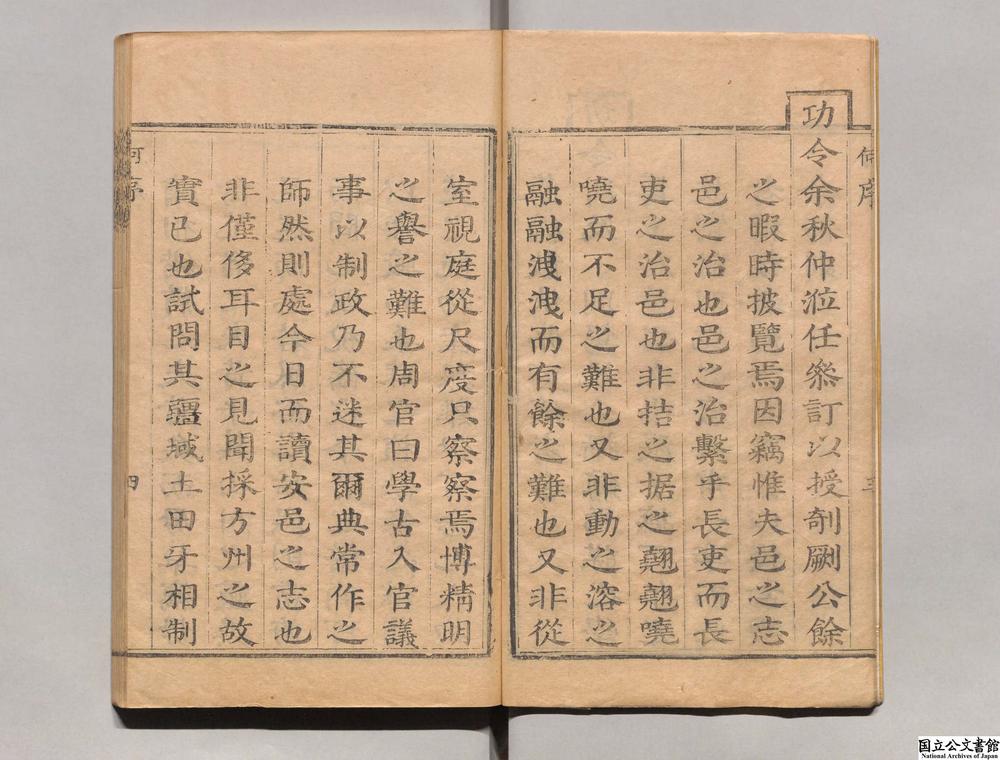 功令余秋仲涖任叅訂以授剞劂公餘
之暇時披覽焉因竊惟夫邑之志
邑之治也邑之治繫乎長吏而長
吏之治邑也非拮之据之翹翹嘵
嘵而不足之難也又非動之溶之
融融洩洩而有餘之難也又非從
三
室視庭從尺度只察察焉博精明
之譽之難也周官曰學古入官議
事以制政乃不迷其爾典常作之
師然則處今日而讀安邑之志也
非僅侈耳目之見聞採方州之故
實已也試問其疆域土田牙相制
四
国立公文書館
National Archives of Japan